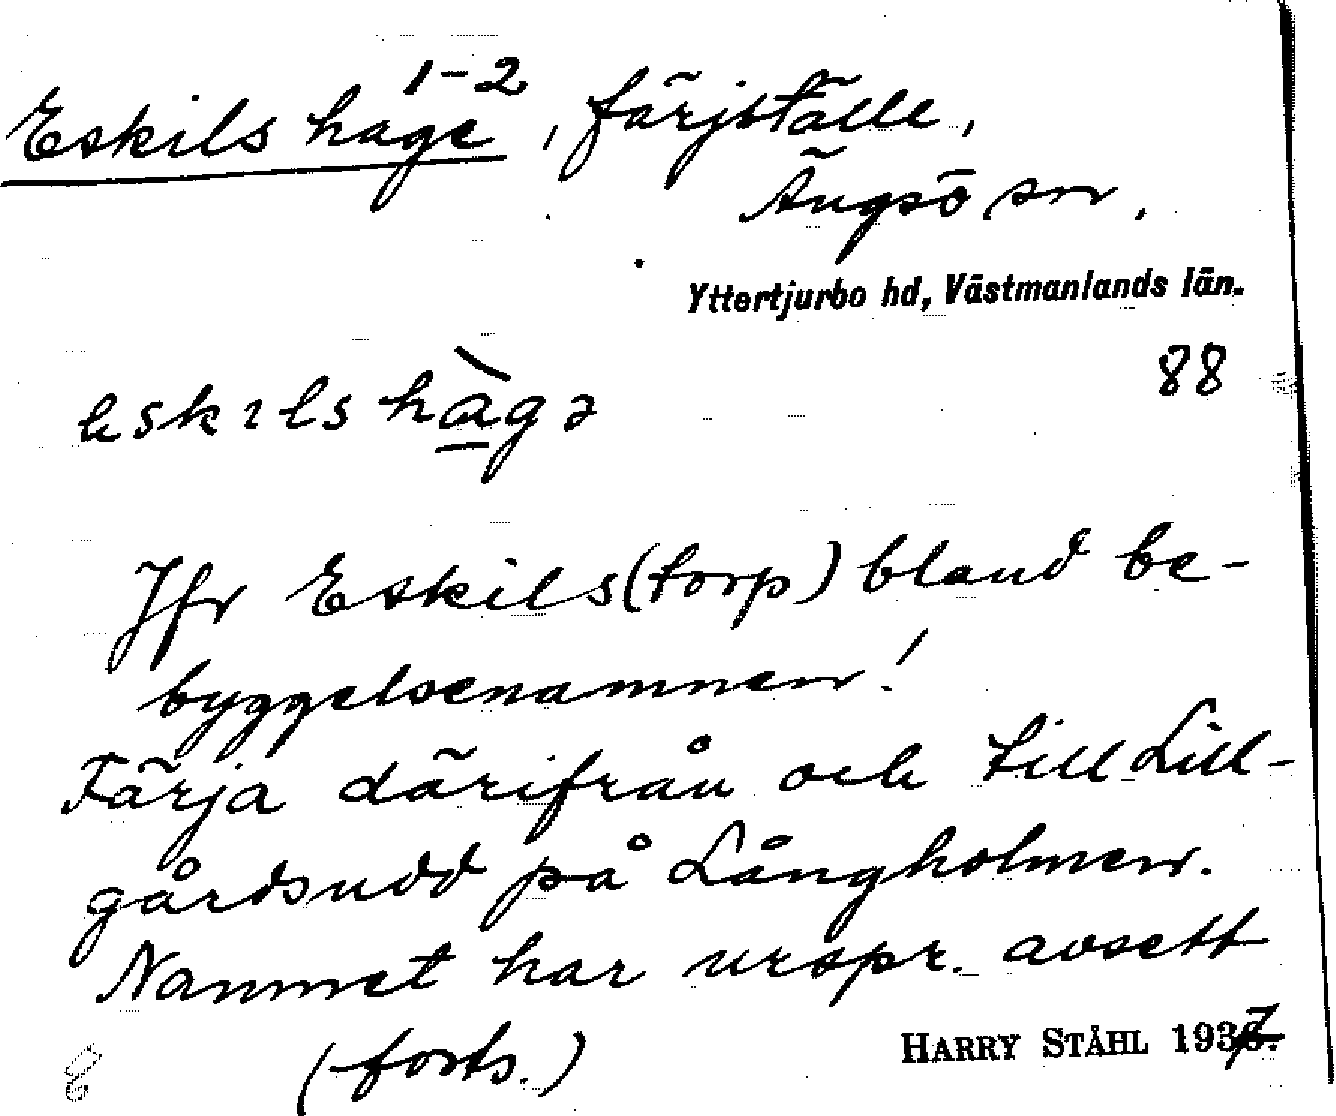 Eskils hage 1-2, färjställe,
Ängsö sn.
Yttertjurbo hd, Västmanlands län.
88
eskɩlshàgə
Jfr Eskils(torp) bland be-
byggelsenamnen!
Färja därifrån och till Lill-
gårdsudd på Långholmen.
Namnet har urspr. avsett
(forts.)
HARRY STÅHL 1937